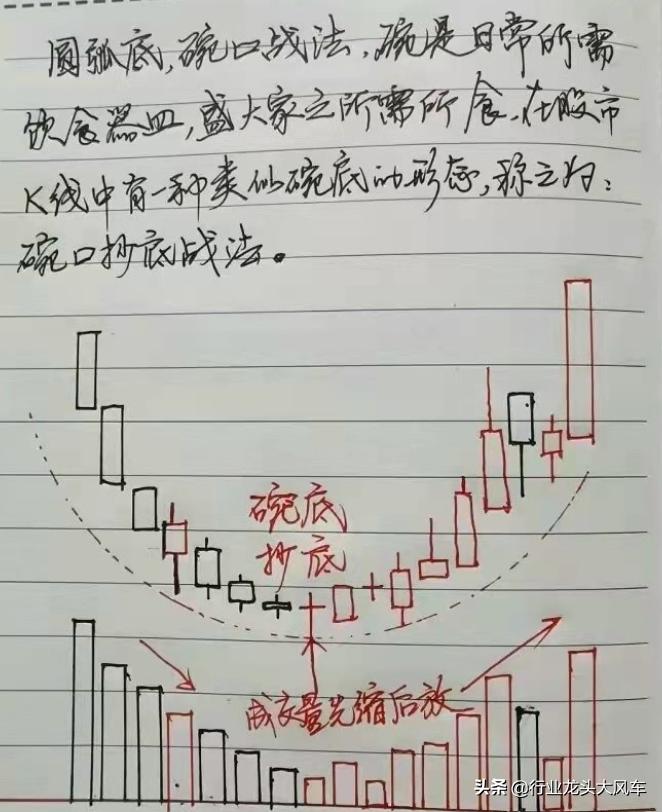 圆弧底,碗口战法,碗是日常所需
饮食器皿,盛大家之所需所食,在股市
K线中有一种类似碗底的形态,称之为:
碗口抄底战法。
碗底
抄底
成交量先缩后放
头条 @行业龙头大风车